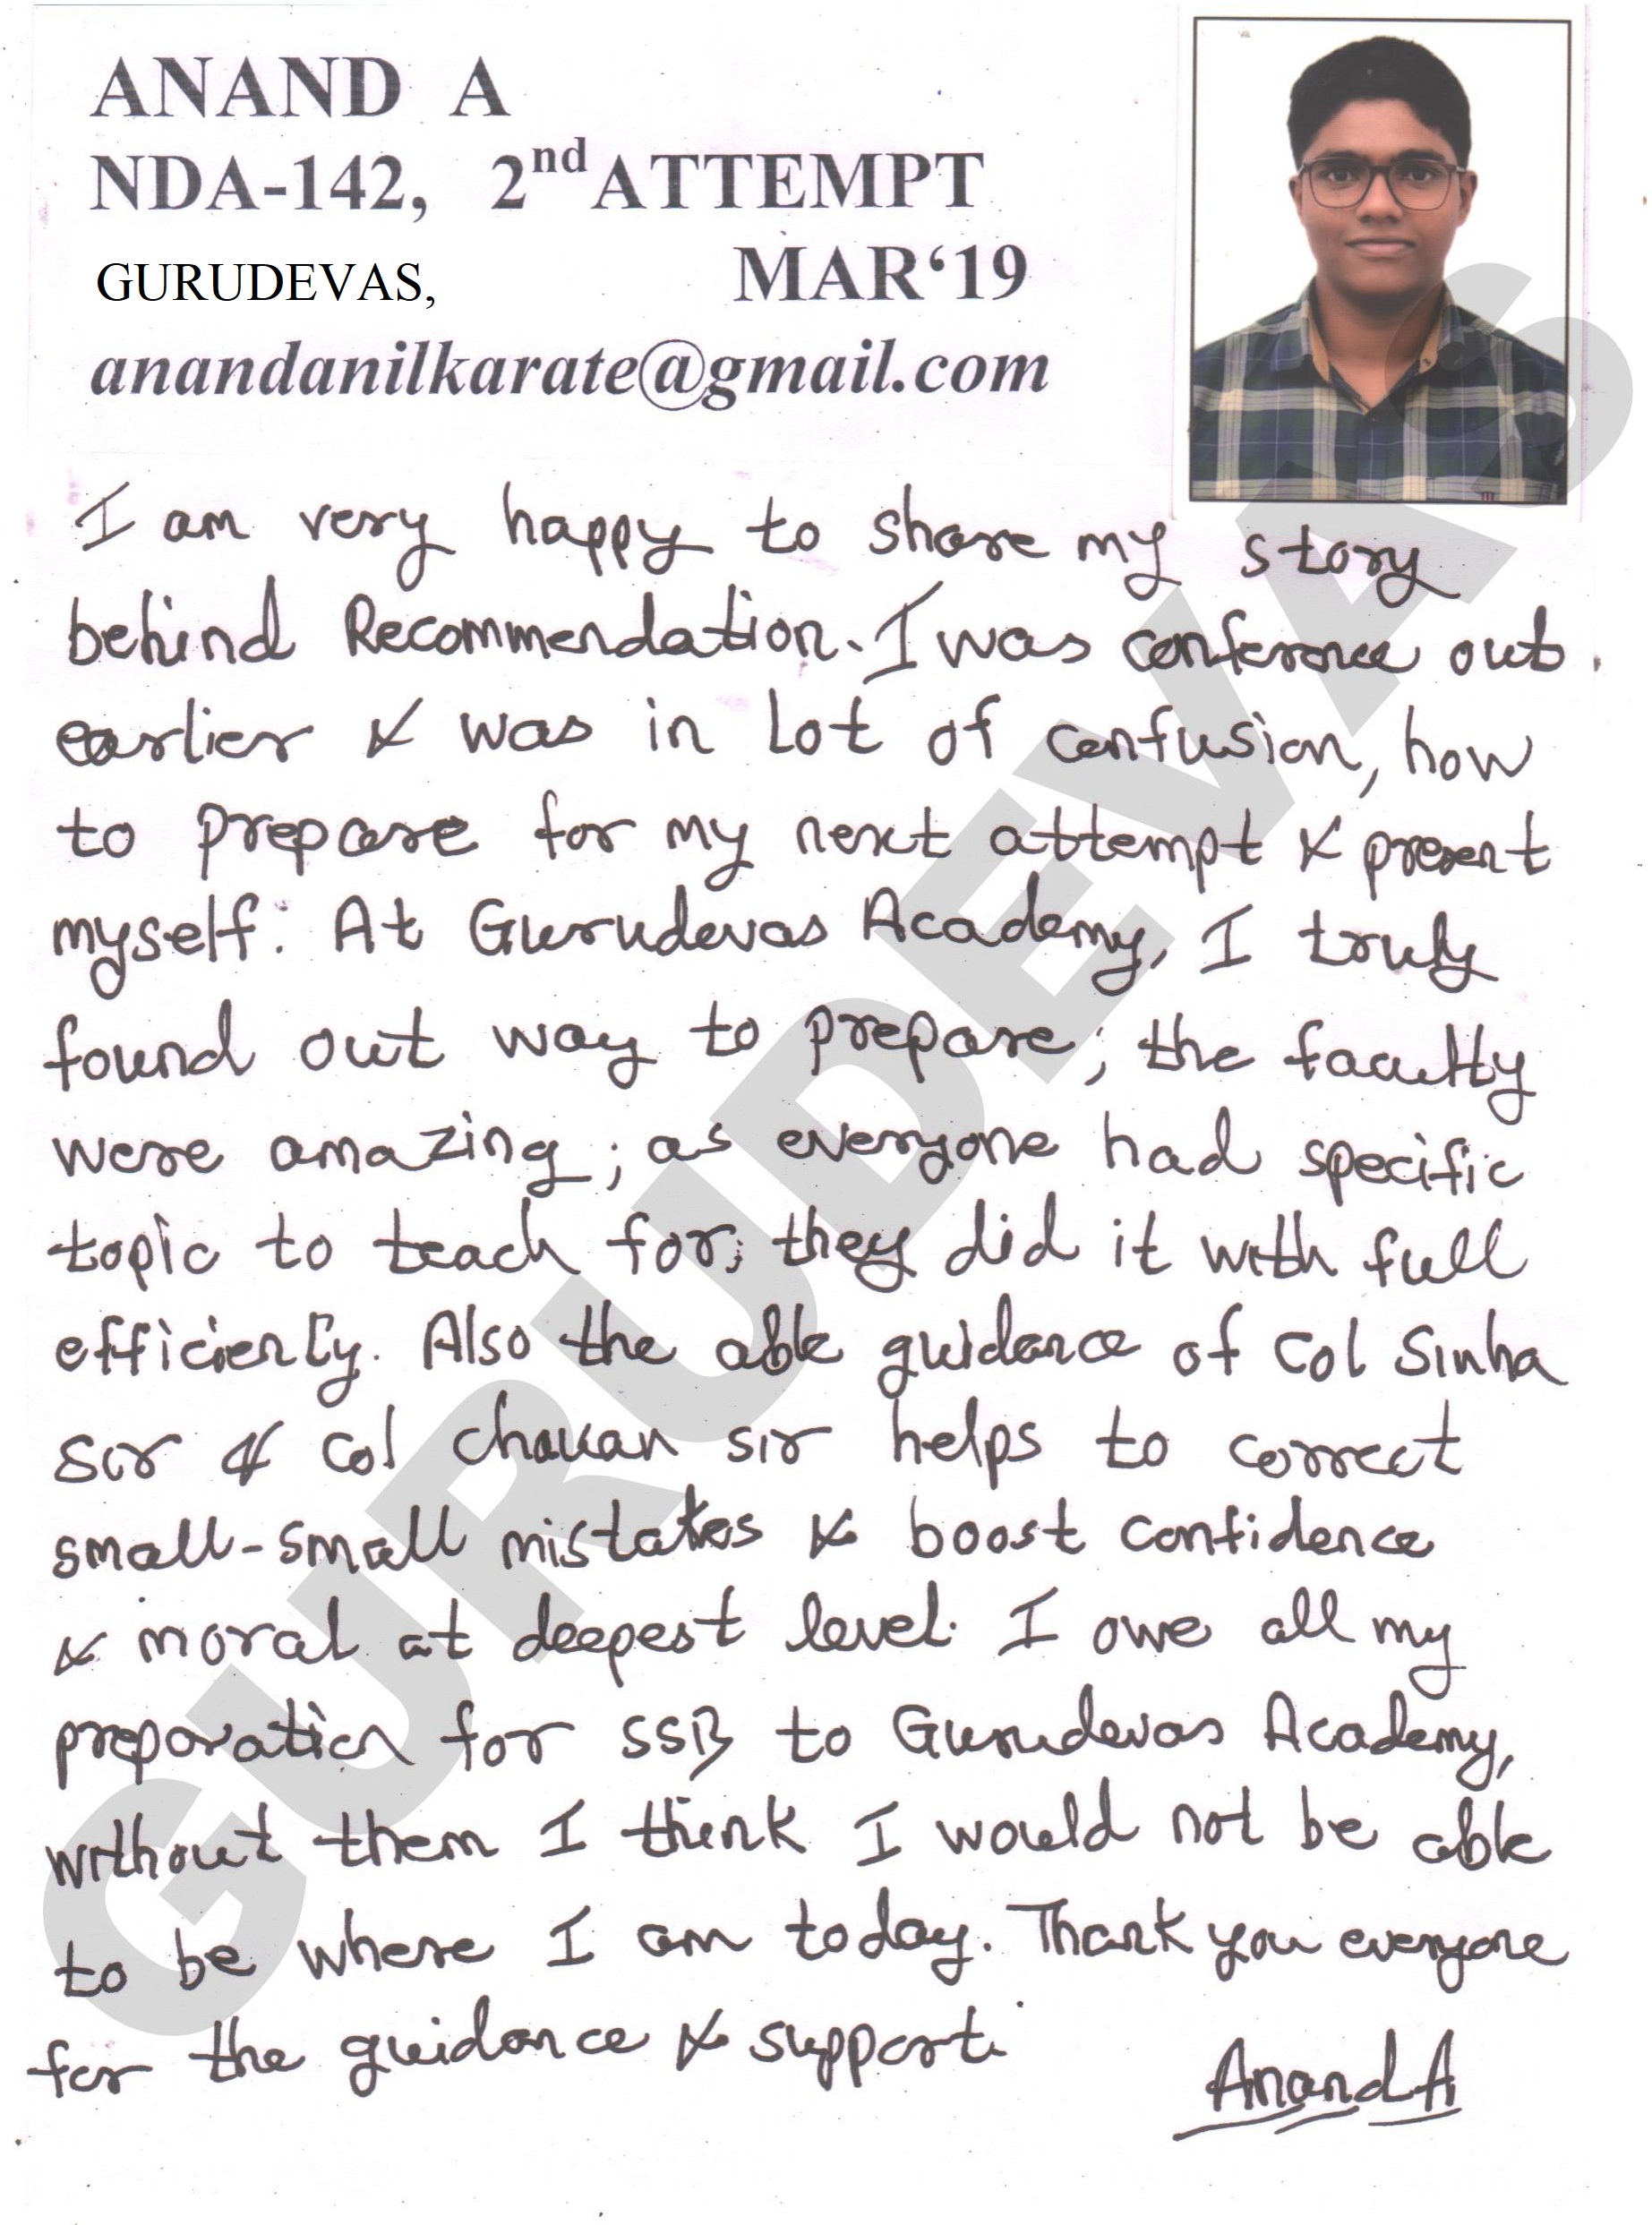 ANAND A
NDA-142, 2nd ATTEMPT
GURUDEVAS, MAR‘19
anandanilkarate@gmail.com
I am very happy to share my story
behind Recommendation. I was conference out
earlier & was in Lot of confusion, how
to prepare for my next attempt & present
myself. At Gurudevas Academy, I truly
found out way to prepare; the faculty
were amazing; as everyone had specific
topic to teach for; they did it with full
efficiency. Also the able guidance of Col Sinha
Sir & Col Chavan sir helps to correct
small-small mistakes & boost confidence
& moral at deepest level. I owe all my
preparation for SSB to Gurudevas Academy,
without them I think I would not be able
to be where I am today. Thank you everyone
for the guidance & support.
Anand A
GURUDEVAS